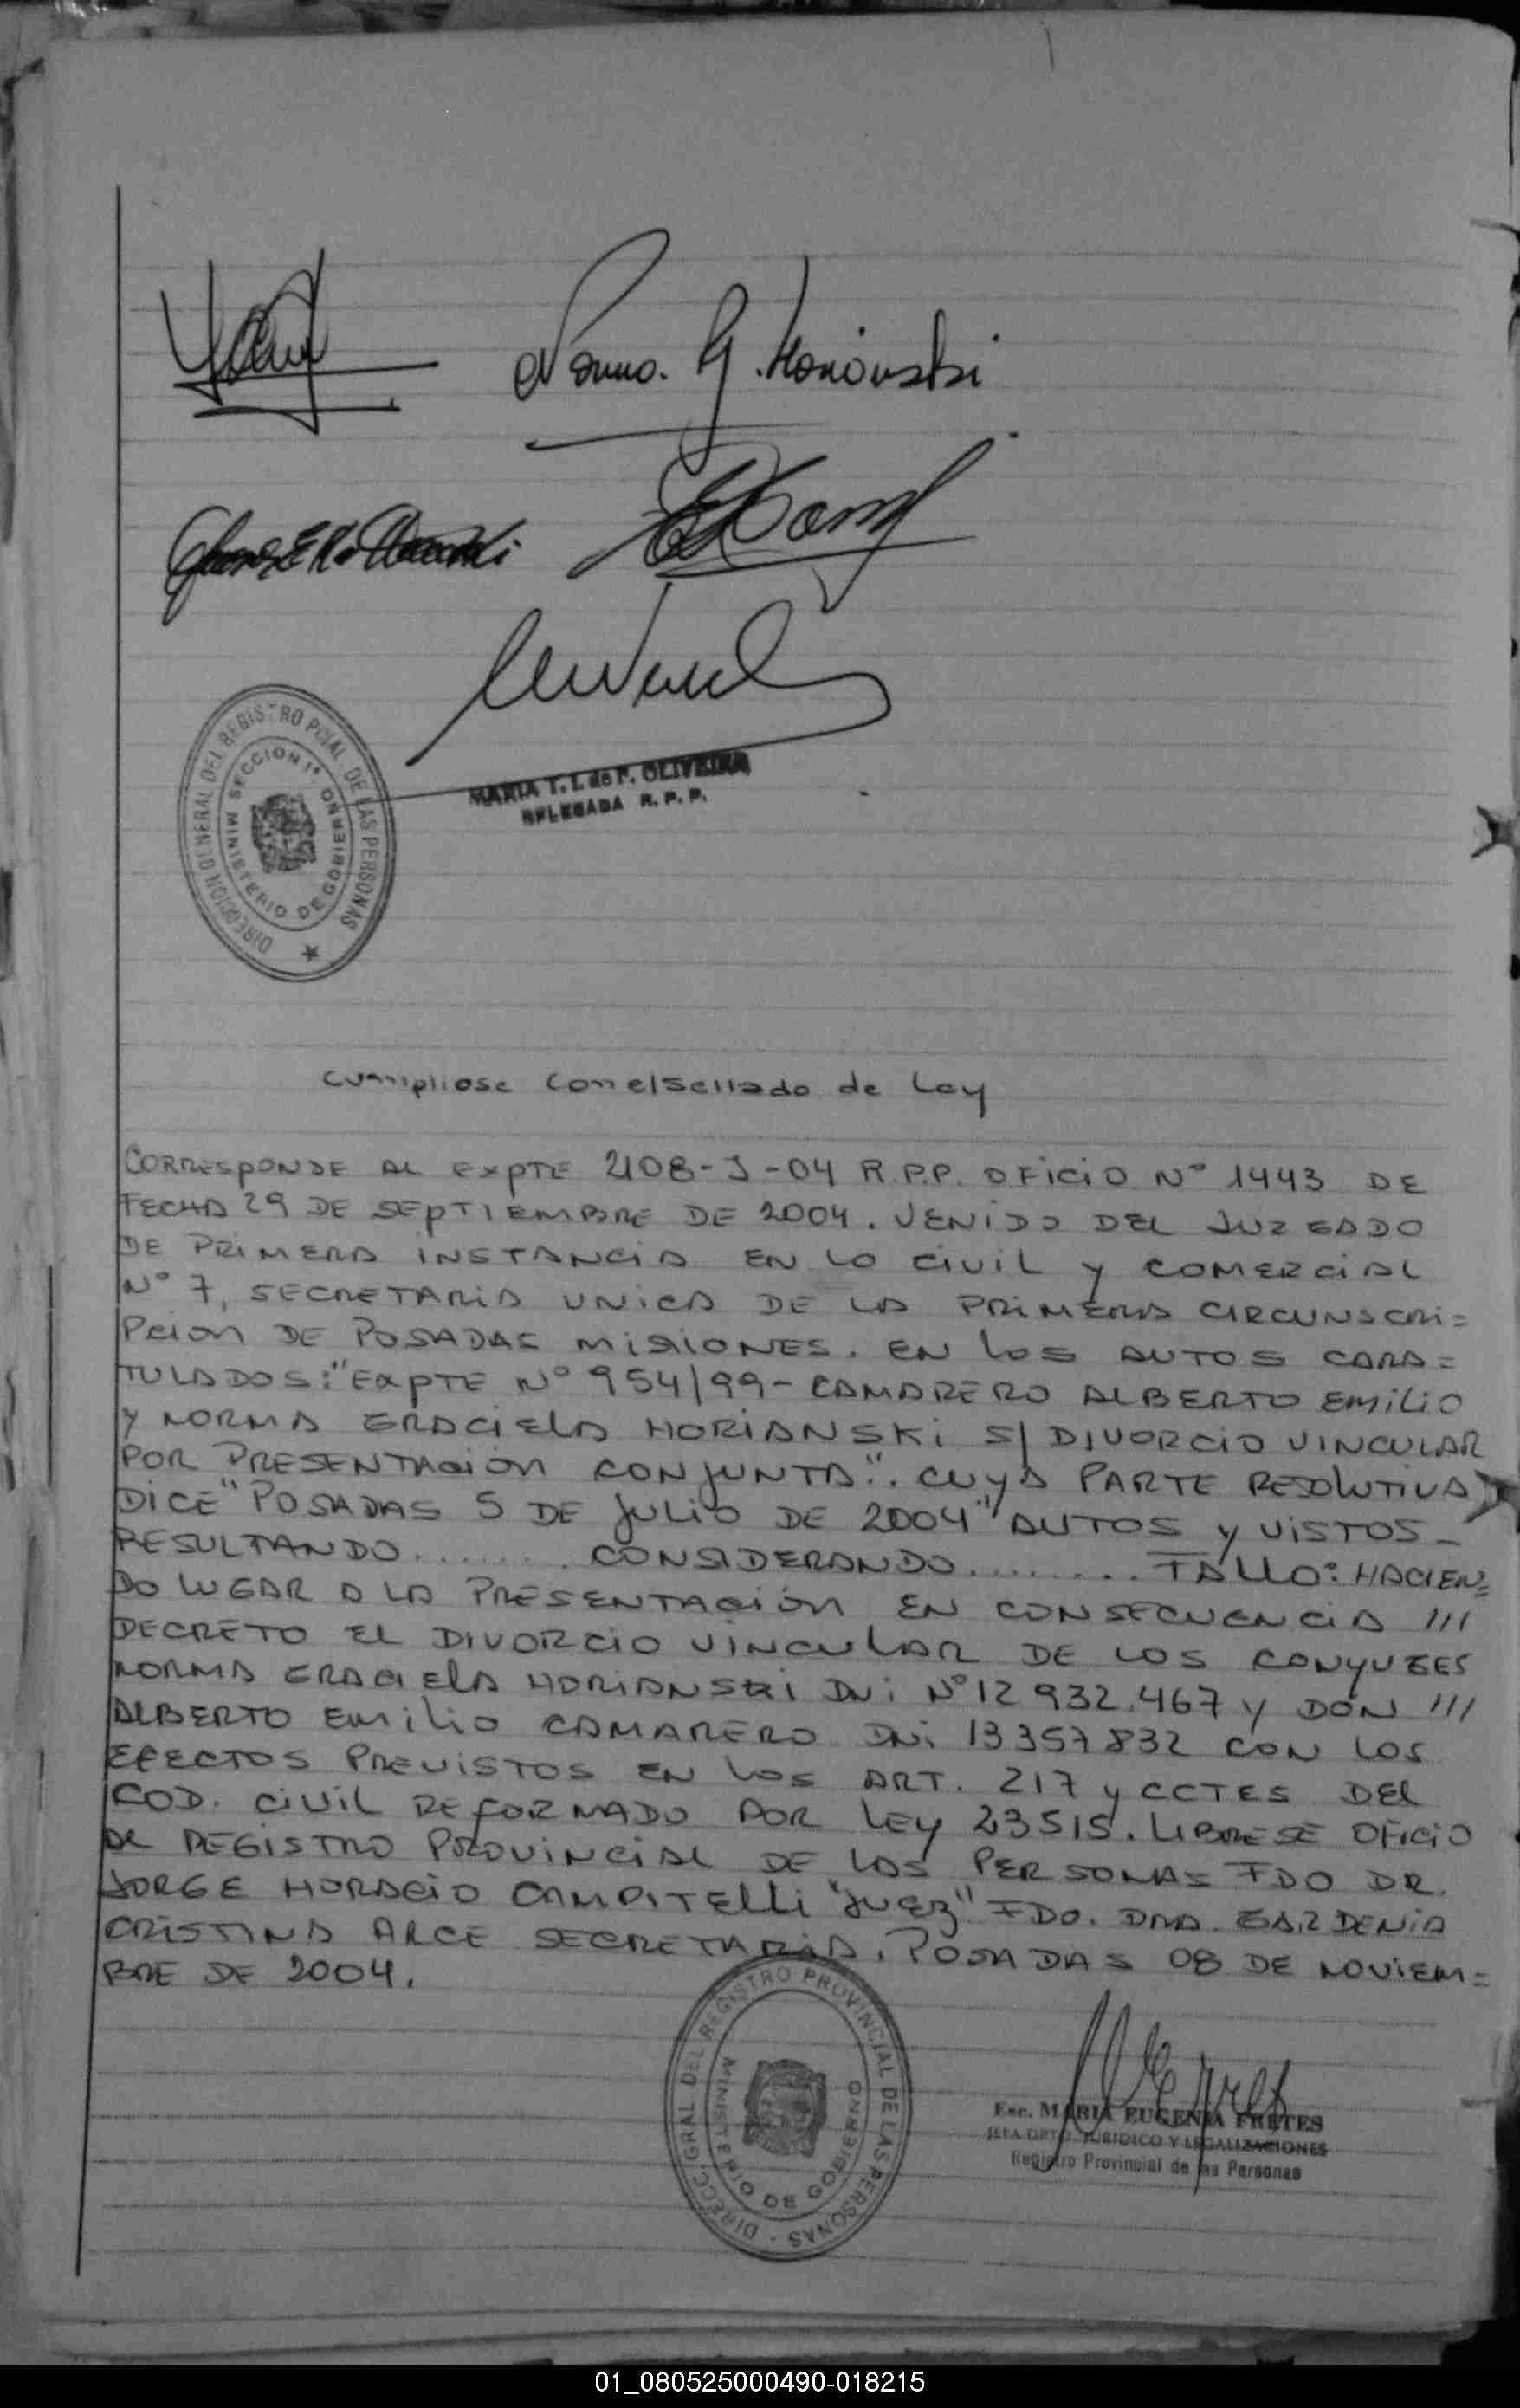 Norma. G. Horianski
DIRECCION GENERAL DEL REGISTRO PCIAL. DE LAS PERSONAS
SECCION 1ª
MINISTERIO DE GOBIERNO
MARIA T. I. de F. OLIVEIRA
DELEGADA R. P. P.
Cumpliose con el sellado de Ley
CORRESPONDE AL EXPTE 2108-J-04 R.P.P. OFICIO Nº 1443 DE
FECHA 29 DE SEPTIEMBRE DE 2004. VENIDO DEL JUZGADO
DE PRIMERA INSTANCIA EN LO CIVIL y COMERCIAL
Nº 7, SECRETARIA UNICA DE LA PRIMERA CIRCUNSCRI=
PCION DE POSADAS MISIONES. EN LOS AUTOS CARA=
TULADOS: "EXPTE Nº 954/99-CAMARERO ALBERTO EMILIO
Y NORMA GRACIELA HORIANSKI S/ DIVORCIO VINCULAR
POR PRESENTACION CONJUNTA". CUYA PARTE RESOLUTIVA
DICE "POSADAS 5 DE JULIO DE 2004" AUTOS y VISTOS_
RESULTANDO........ CONSIDERANDO......... FALLO: HACIEN=
DO LUGAR A LA PRESENTACIÓN EN CONSECUENCIA ///
DECRETO EL DIVORCIO VINCULAR DE LOS CONYUGES
NORMA GRACIELA HORIANSKI DNI Nº 12 932.467 y DON ///
ALBERTO EMILIO CAMARERO DNI 13357832 CON LOS
EFECTOS PREVISTOS EN LOS ART. 217 y CCTES DEL
COD. CIVIL REFORMADO POR LEY 23515. LIBRESE OFICIO
AL REGISTRO PROVINCIAL DE LAS PERSONAS FDO DR.
JORGE HORACIO CAMPITELLI "JUEZ" FDO. DRA. GARDENIA
CRISTINA ARCE SECRETARIA. POSADAS 08 DE NOVIEM=
BRE DE 2004.
DIRECC. GRAL DEL REGISTRO PROVINCIAL DE LAS PERSONAS -
MINISTERIO DE GOBIERNO
Esc. MARIA EUGENIA FRETES
JEFA DPTO. JURIDICO Y LEGALIZACIONES
Registro Provincial de las Personas
01_080525000490-018215